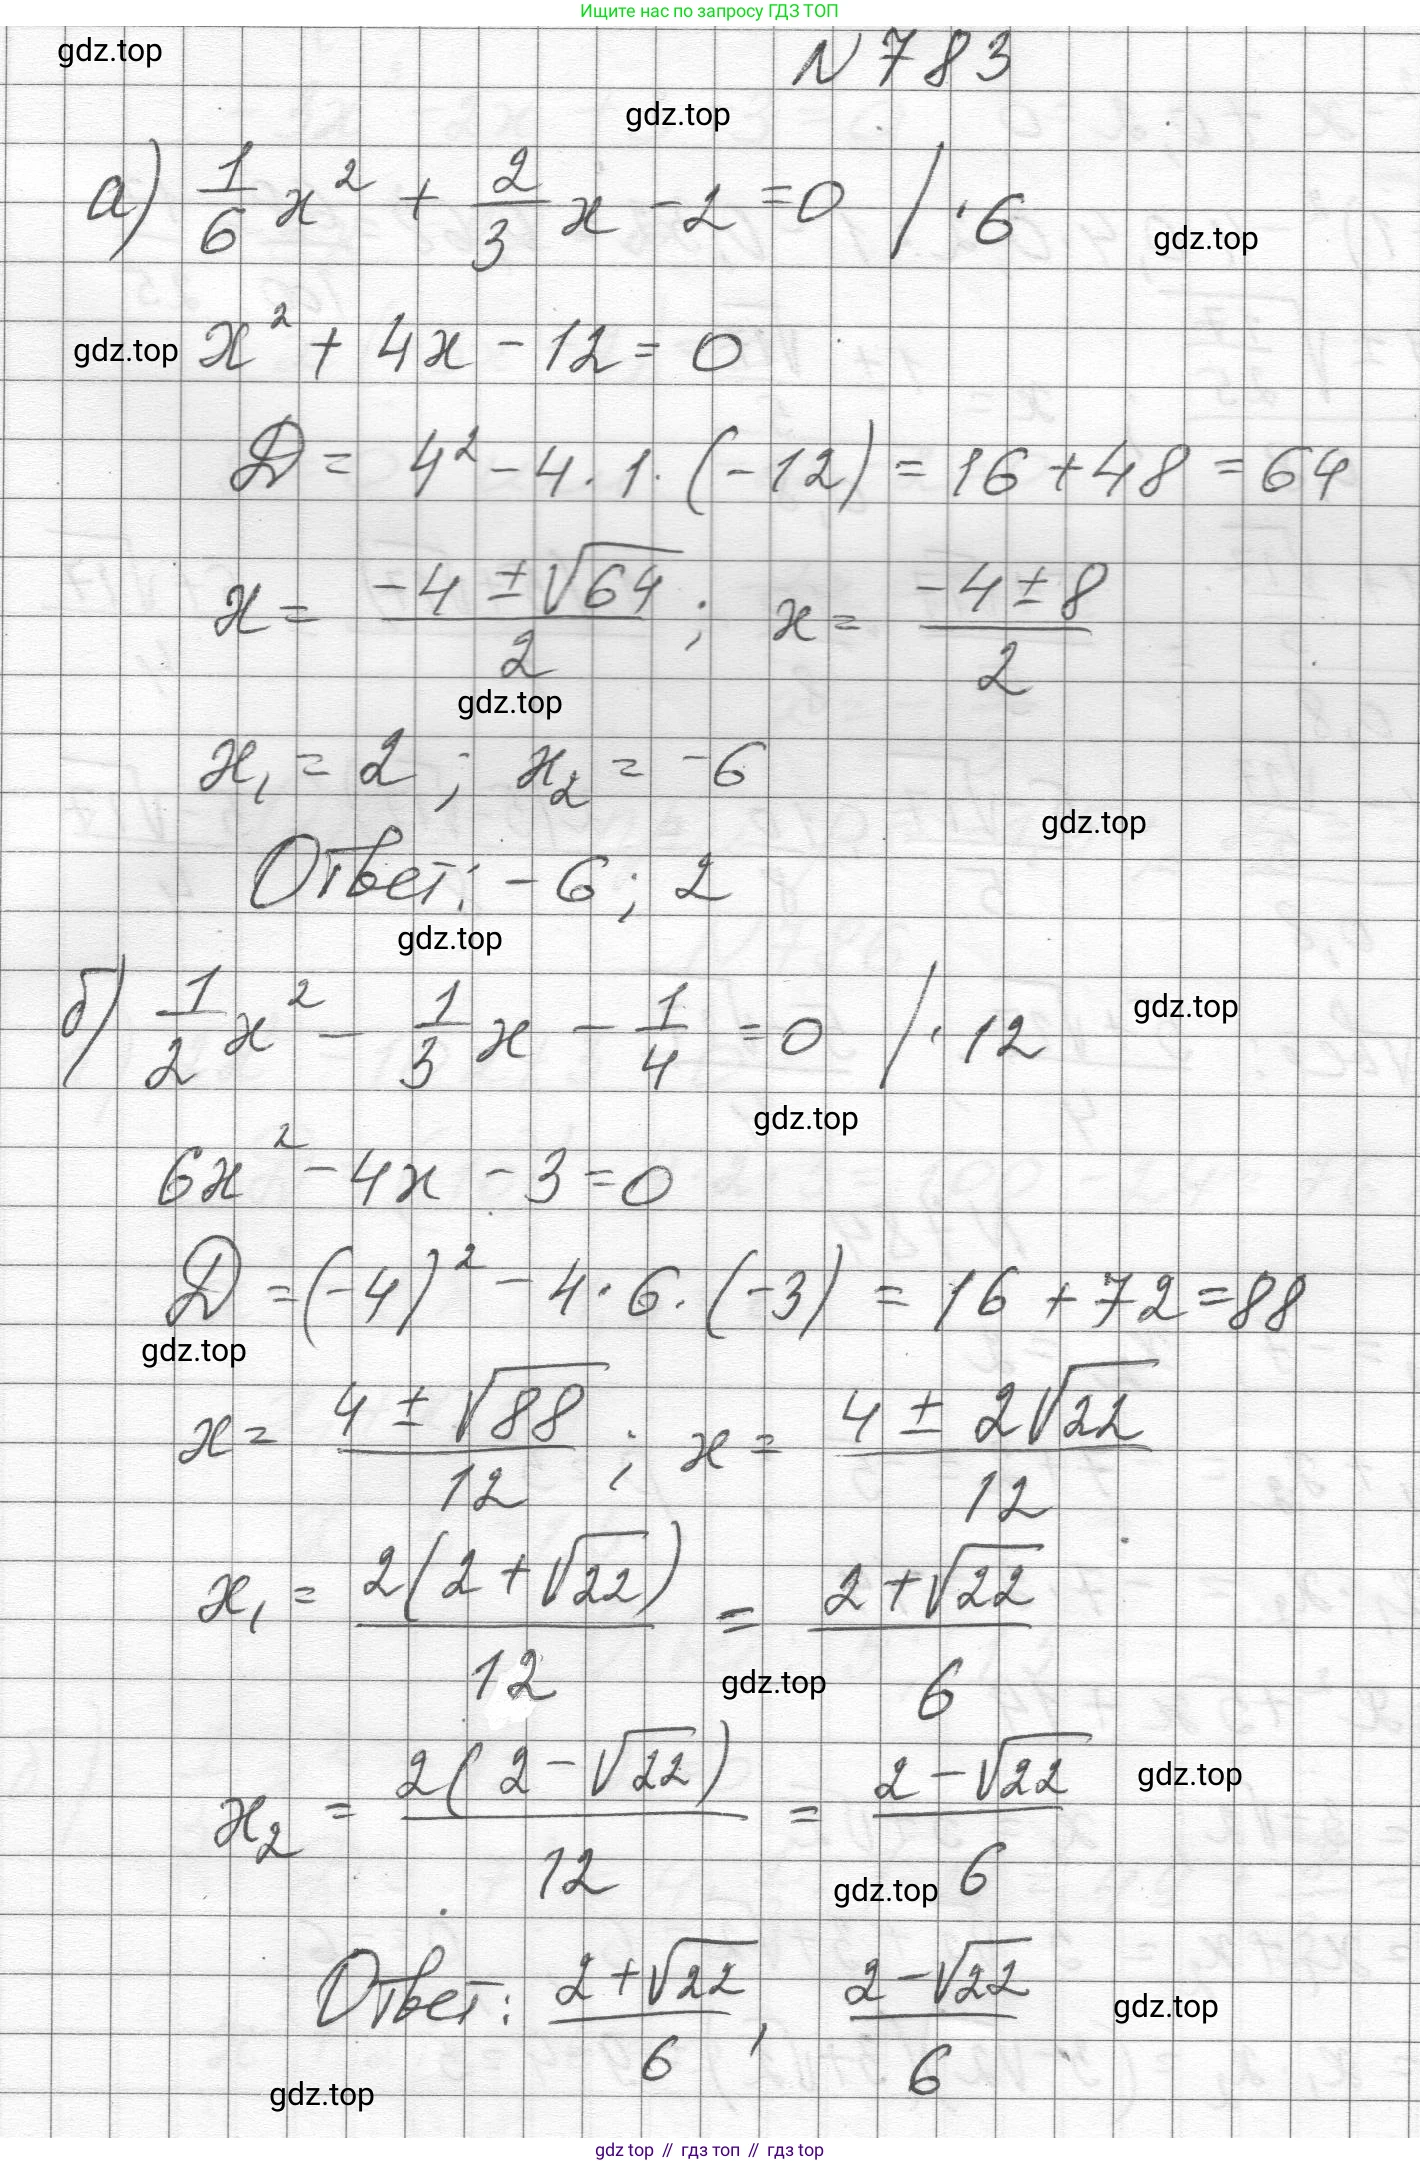 Ищите нас по запросу ГДЗ ТОП
gdz.top
N 783
gdz.top
а) 1/6 x² + 2/3 x - 2 = 0 / · 6
gdz.top
gdz.top
x² + 4x - 12 = 0
D = 4² - 4 · 1 · (-12) = 16 + 48 = 64
x = (-4 ± √64)/2 ; x = (-4 ± 8)/2
gdz.top
x₁ = 2 ; x₂ = -6
gdz.top
Ответ: -6 ; 2
gdz.top
б) 1/2 x² - 1/3 x - 1/4 = 0 / · 12
gdz.top
gdz.top
6x² - 4x - 3 = 0
D = (-4)² - 4 · 6 · (-3) = 16 + 72 = 88
gdz.top
x = (4 ± √88)/12 ; x = (4 ± 2√22)/12
x₁ = 2(2 + √22)/12 = (2 + √22)/6
gdz.top
x₂ = 2(2 - √22)/12 = (2 - √22)/6
gdz.top
gdz.top
Ответ: (2 + √22)/6 , (2 - √22)/6
gdz.top
gdz.top
gdz top // гдз топ // гдз top